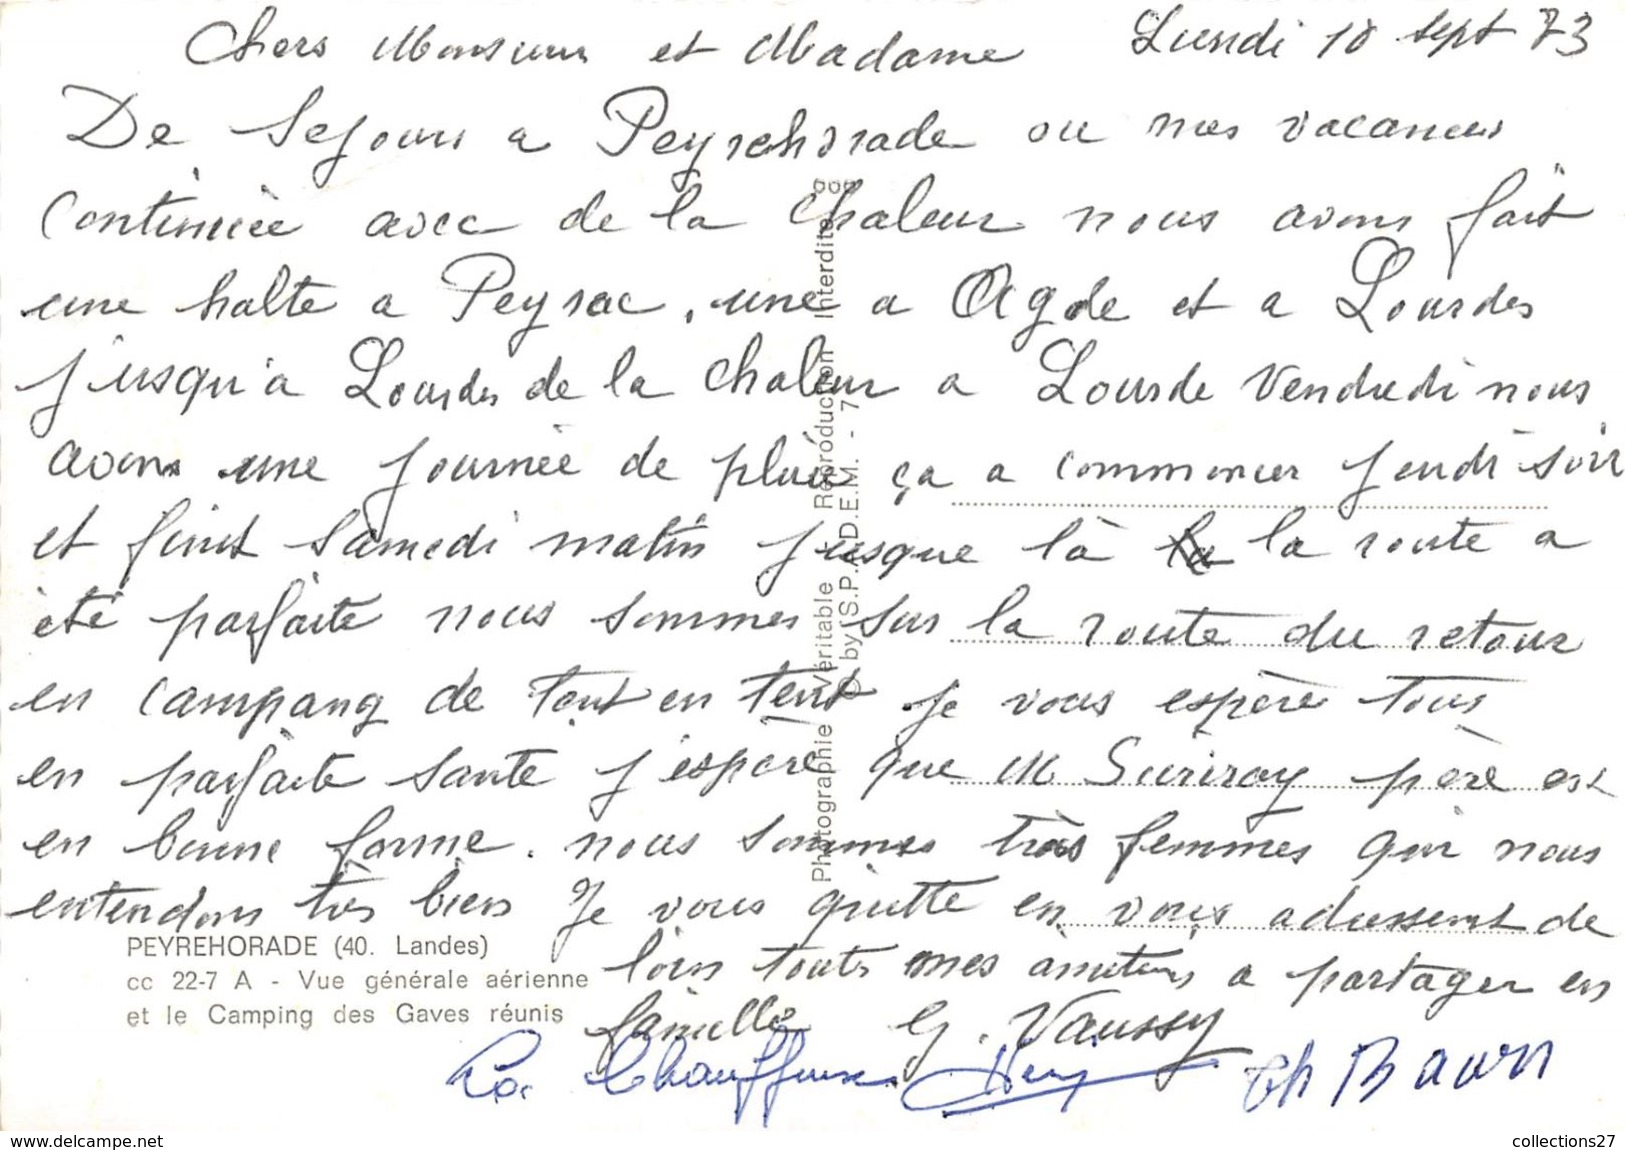 Chers Monsieur et Madame Lundi 10 sept 73
De Sejour a Peyrehorade ou nos vacances
Continuée avec de la Chaleur nous avons fait
une halte a Peyrac, une a Agde et a Lourdes
jusqu'a Lourdes de la chaleur a Lourde Vendredi nous
avons une journée de pluie ça a commencer jeudi soir
et finit Samedi matin jusque là la route a
été parfaite nous sommes sur la route du retour
en campang de tent en tent je vous espère tous
en parfaite santé j'espère que M Suriray père est
en bonne forme. nous sommes trois femmes qui nous
entendons très bien Je vous quitte en vous adressent de
loin touts mes amitiés a partager en
famille G. Vaussy
La Chauffeuse Ch Baurn
PEYREHORADE (40. Landes)
cc 22-7 A - Vue générale aérienne
et le Camping des Gaves réunis
Photographie Véritable Reproduction Interdite
© by S.P.A.D.E.M. - 7
www.delcampe.net
collections27